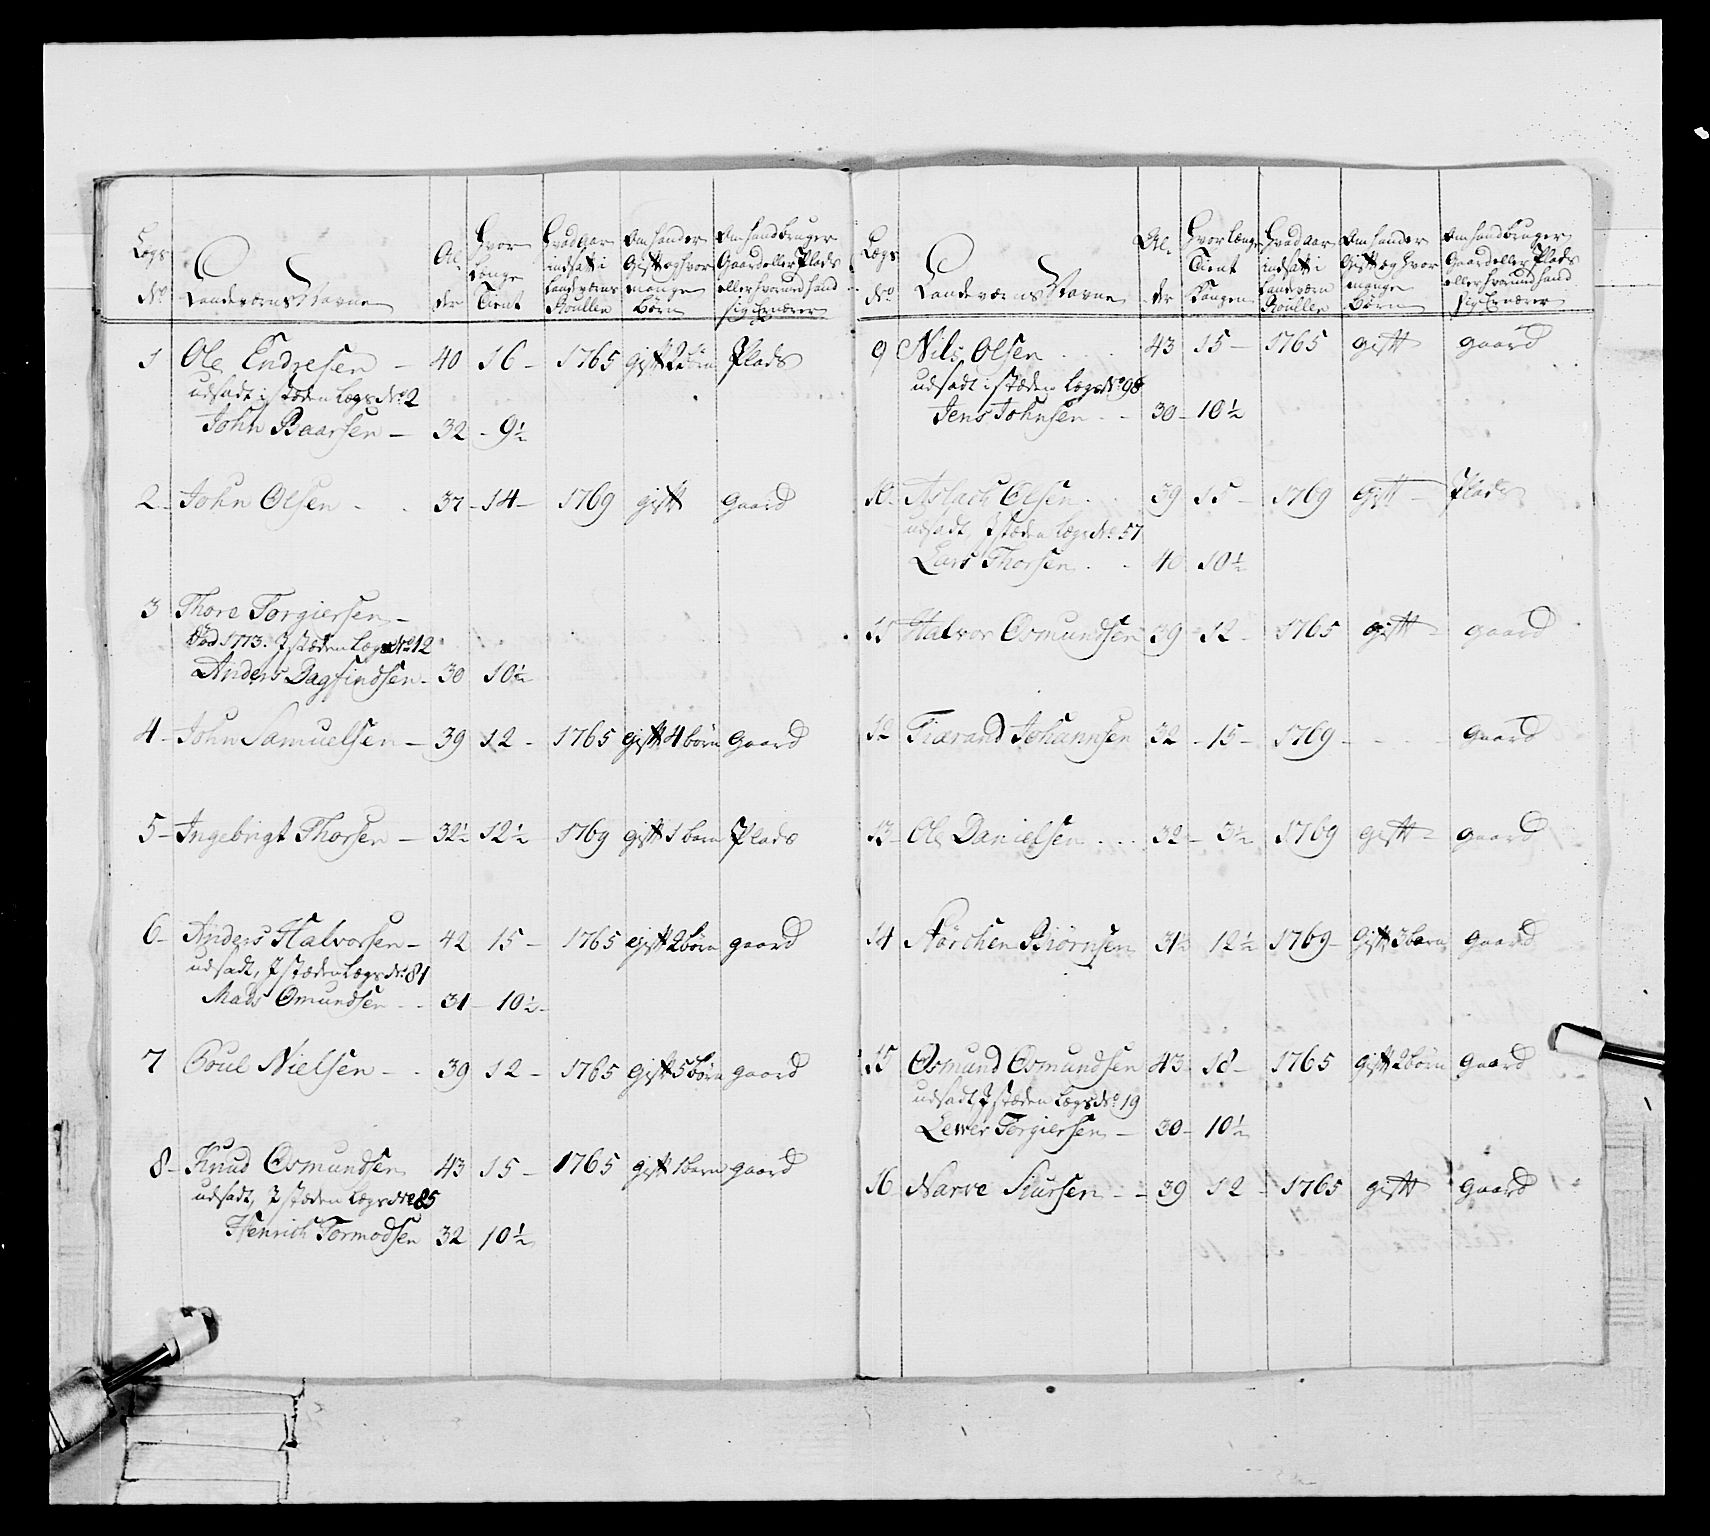 Legs No
Landeværns Navne
Al der
Hvor længe Tient
Hvad aar indsatt i Landeværns Roullen
Om hand er Gift og hvor mange Børn
Om hand bruger Gaard eller Plads eller hvorved hand sig Ernærer
1 Ole Endresen – 40 16 – 1765 gift 2 børn Plads
udsadt i stæden Legs No 2
John Baarsen – 32 – 9½
2 – John Olsen 37 – 14 – 1769 gift gaard
3 Thore Torgiersen –
Død 1773. I stæden Legs No 12
Anders Dagfindsen – 30 10½
4 – John Samuelsen – 39 12 – 1765 gift 4 børn gaard
5 – Ingebrigt Thorsen – 32½ 12½ 1769 gift 1 barn Plads
6 – Anders Halvorsen – 42 15 – 1765 gift 2 børn gaard
udsadt, I stæden Legs No 81
Mads Omundsen – 31 – 10½ –
7 Poul Nielsen – 39 12 – 1765 gift 5 børn gaard
8 – Knud Osmundsen 43 15 – 1765 gift 1 barn gaard
udsadt, I stæden Legs No 85
Henrich Tormodsen 32 10½
Lægs No
Landeværns Navne
Al der
Hvor længe Tient Kongen
Hvad aar indsatt i Landeværn Roullen
Om hand er Gift og hvor mange Børn
Om hand bruger Gaard eller Plads eller hvorved hand sig Ernærer
9 Nils Olsen 43 15 – 1765 gift gaard
udsadt i stæden Legs No 98
Jens Johnsen – 30 – 10½
10 – Aslach Olsen 39 15 – 1769 Gift – Plads
udsadt, I stæden Legs No 57
Lars Thorsen 40 10½
11 Halvor Osmundsen 39 12 – 1765 gift – gaard
12 Tiærand Johannsen 32 – 15 – 1769 – gaard
13 – Ole Danielsen 32 – 3½ 1769 gift – gaard
14 Størchen Biörnsen 31½ 12½ 1769 – Gift 3 børn gaard
15 Osmund Osmundsen 43 18 – 1765 gift 2 børn gaard
udsadt I stæden Legs No 19
Torgiersen – 30 – 10½
16 Narve Siursen – 39 12 – 1765 gift gaard